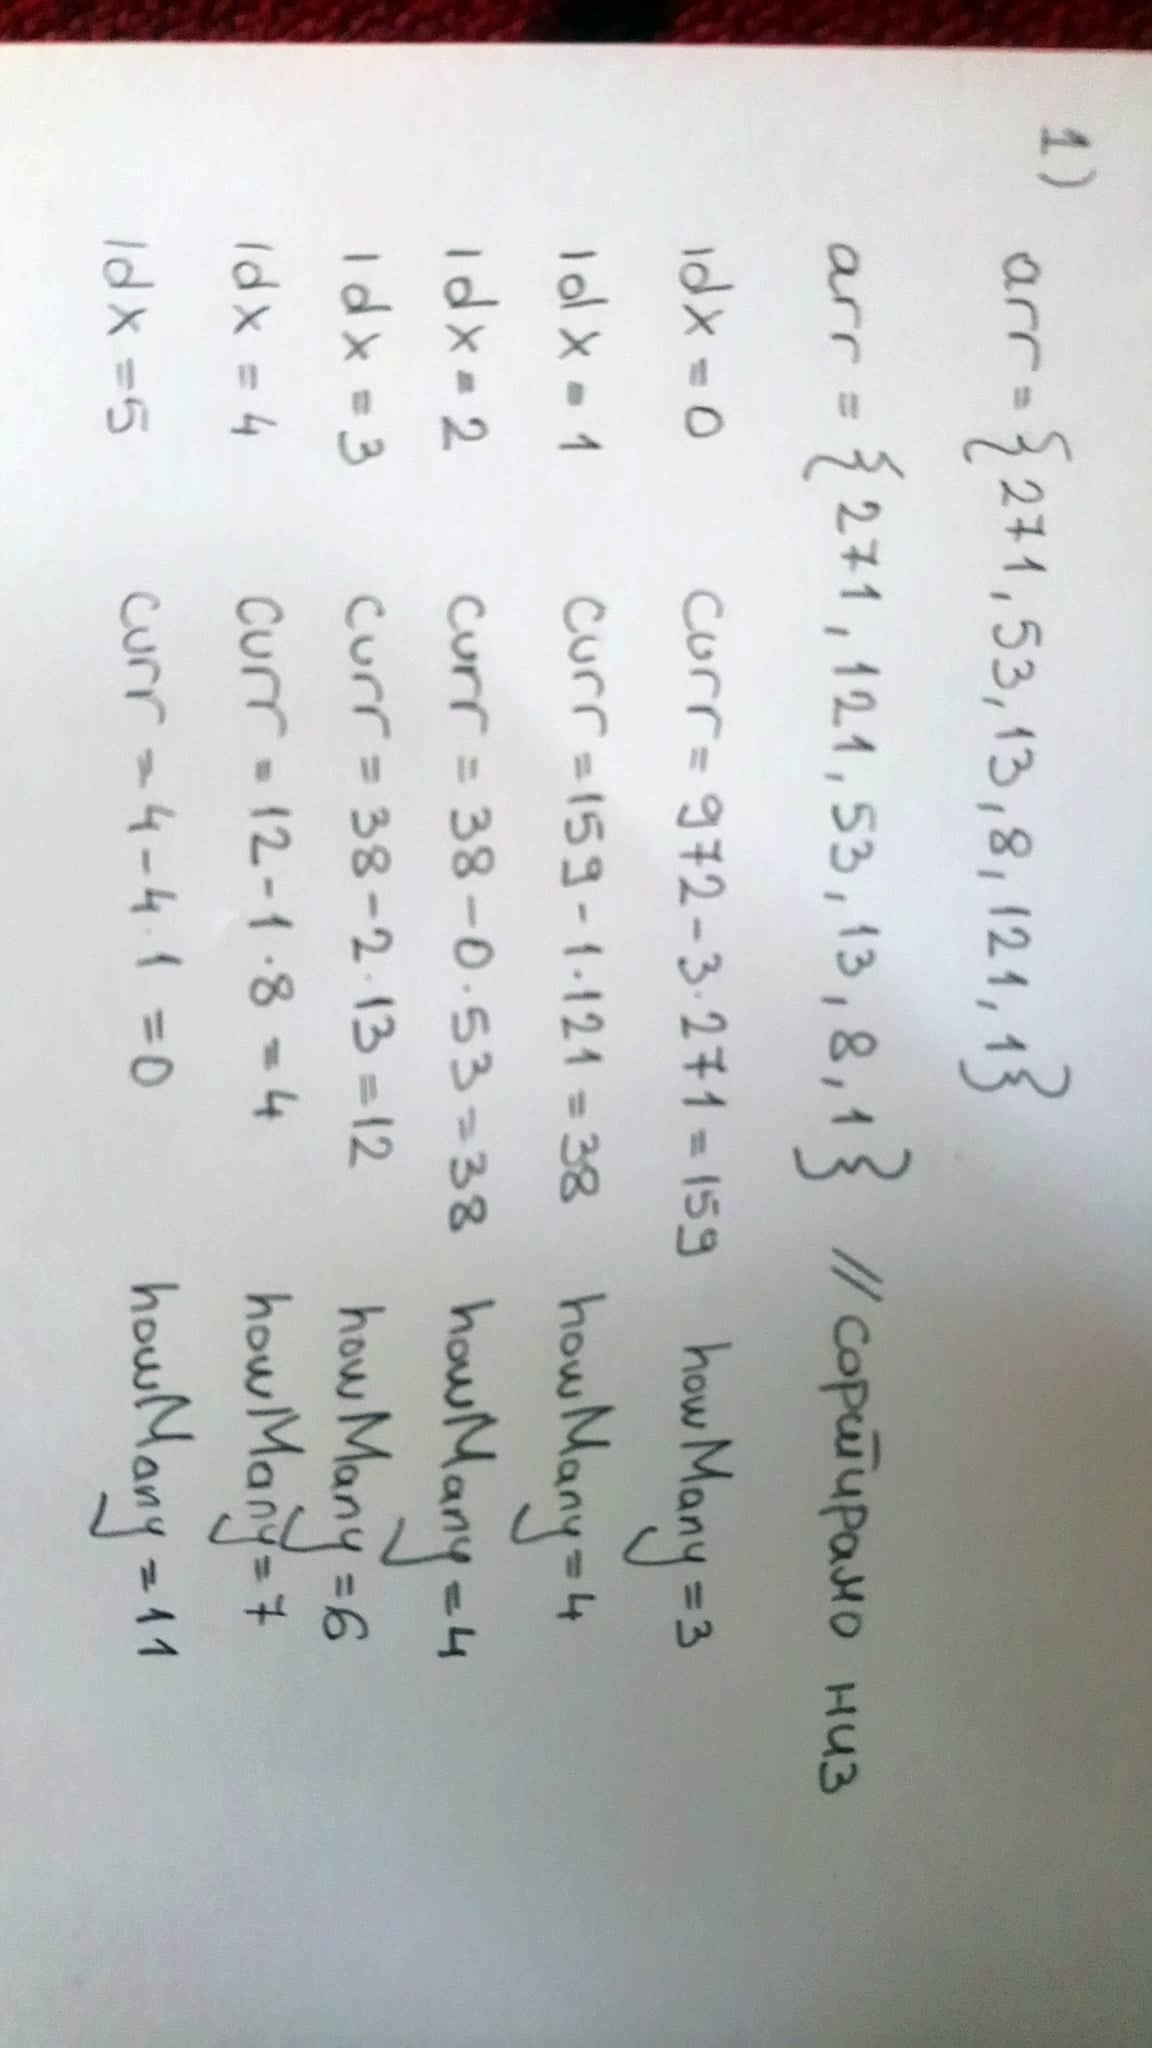 1) arr = {271, 53, 13, 8, 121, 1}
arr = {271, 121, 53, 13, 8, 1} //сортирано низ
idx = 0 curr = 972 - 3·271 = 159 howMany = 3
idx = 1 curr = 159 - 1·121 = 38 howMany = 4
idx = 2 curr = 38 - 0·53 = 38 howMany = 4
idx = 3 curr = 38 - 2·13 = 12 howMany = 6
idx = 4 curr = 12 - 1·8 = 4 howMany = 7
idx = 5 curr = 4 - 4·1 = 0 howMany = 11